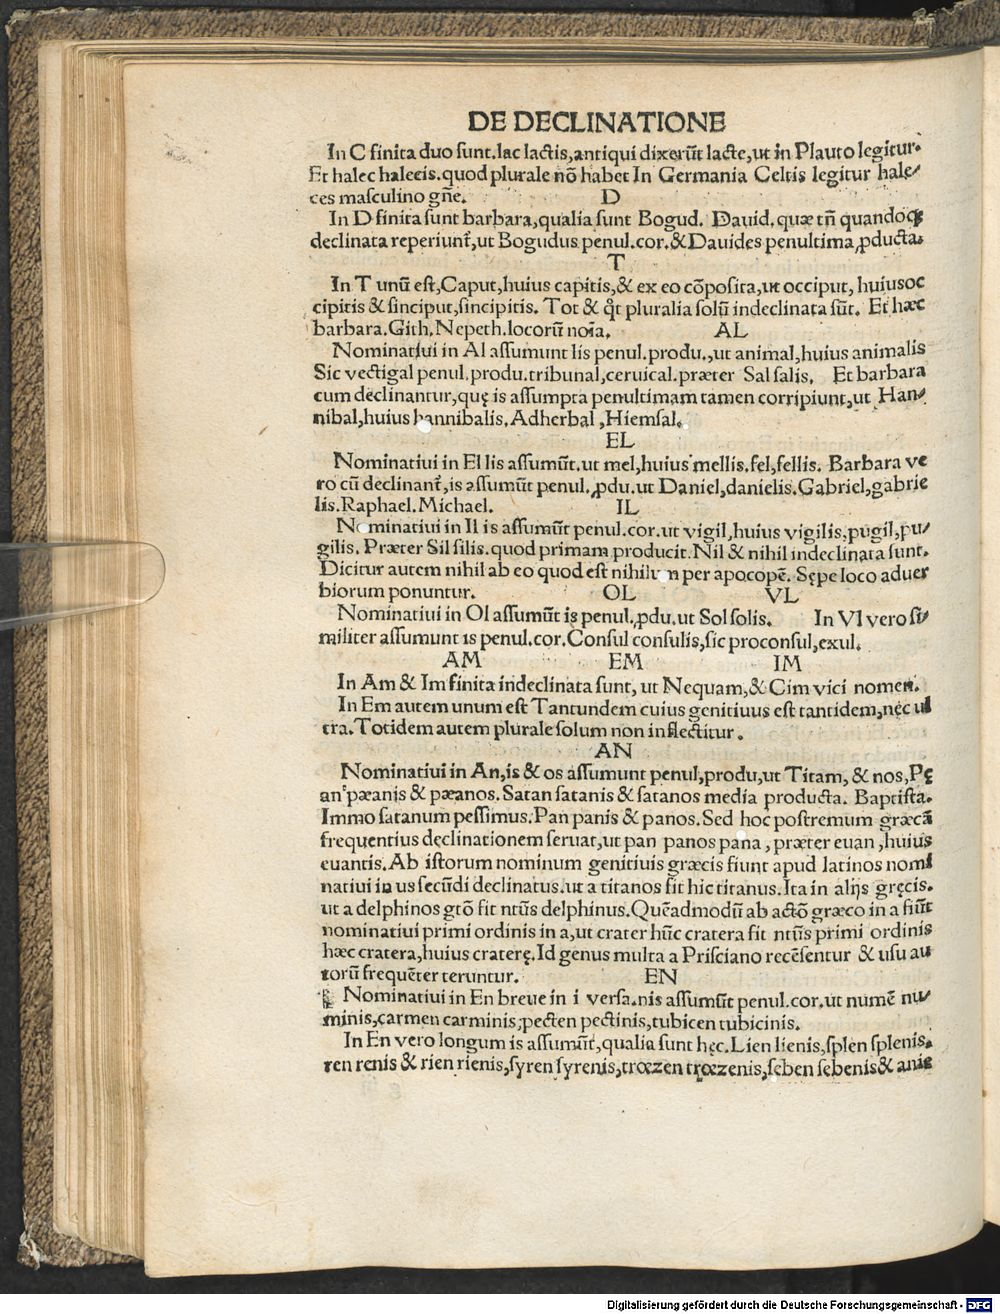 DE DECLINATIONE
In C finita duo sunt.lac lactis,antiqui dixerūt lacte,ut in Plauto legitur.
Et halec halecis.quod plurale nō habet In Germania Celtis legitur hale/
ces masculino gñe. D
In D finita sunt barbara,qualia sunt Bogud. Dauid. quæ tñ quandoqꝫ
declinata reperiunt᷑,ut Bogudus penul.cor.& Dauides penultima ꝓducta.
T
In T unū est,Caput,huius capitis,& ex eo cōposita,ut occiput, huiusoc
cipitis & sinciput,sincipitis. Tot & q̊t pluralia solū indeclinata sūt. Et hæc
barbara.Gith.Nepeth.locorū noīa. AL
Nominatiui in Al assumunt lis penul.produ.,ut animal,huius animalis
Sic vectigal penul.produ.tribunal,ceruical.præter Sal salis. Et barbara
cum declinantur,quę is assumpta penultimam tamen corripiunt,ut Han/
nibal,huius hannibalis,Adherbal,Hiemsal.
EL
Nominatiui in El lis assumūt.ut mel,huius mellis.fel,fellis. Barbara ve
ro cū declinant᷑,is assumūt penul.ꝓdu.ut Daniel,danielis.Gabriel,gabrie
lis.Raphael.Michael. IL
Nominatiui in Il is assumūt penul.cor.ut vigil,huius vigilis,pugil,pu/
gilis. Præter Sil silis.quod primam producit.Nil & nihil indeclinata sunt.
Dicitur autem nihil ab eo quod est nihilum per apocopē. Sępe loco aduer
biorum ponuntur. OL VL
Nominatiui in Ol assumūt is penul.ꝓdu.ut Sol solis. In Vl vero si/
militer assumunt is penul.cor.Consul consulis,sic proconsul,exul.
AM EM IM
In Am & Im finita indeclinata sunt, ut Nequam,& Cim vici nomen.
In Em autem unum est Tantundem cuius genitiuus est tantidem,nec ul
tra.Totidem autem plurale solum non inflectitur.
AN
Nominatiui in An,is & os assumunt penul,produ,ut Titam, & nos,Pę
an pæanis & pæanos.Satan satanis & satanos media producta. Baptista.
Immo satanum pessimus.Pan panis & panos.Sed hoc postremum græcā
frequentius declinationem seruat,ut pan panos pana, præter euan,huius
euantis.Ab istorum nominum genitiuis græcis fiunt apud latinos nomi
natiui in us secūdi declinatus.ut a titanos fit hic titanus.Ita in alijs gręcis.
ut a delphinos gtō fit ntūs delphinus.Quēadmodū ab actō græco in a fiūt
nominatiui primi ordinis in a,ut crater hūc cratera fit ntūs primi ordinis
hæc cratera,huius craterę.Id genus multa a Prisciano recēsentur & usu au
torū frequēter teruntur. EN
Nominatiui in En breue in i versa.nis assumūt penul.cor.ut numē nu/
minis,carmen carminis,pecten pectinis,tubicen tubicinis.
In En vero longum is assumūt,qualia sunt hęc.Lien lienis,splen splenis.
ren renis & rien rienis,syren syrenis,trœzen trœzenis,seben sebenis & anie
Digitalisierung gefördert durch die Deutsche Forschungsgemeinschaft - DFG